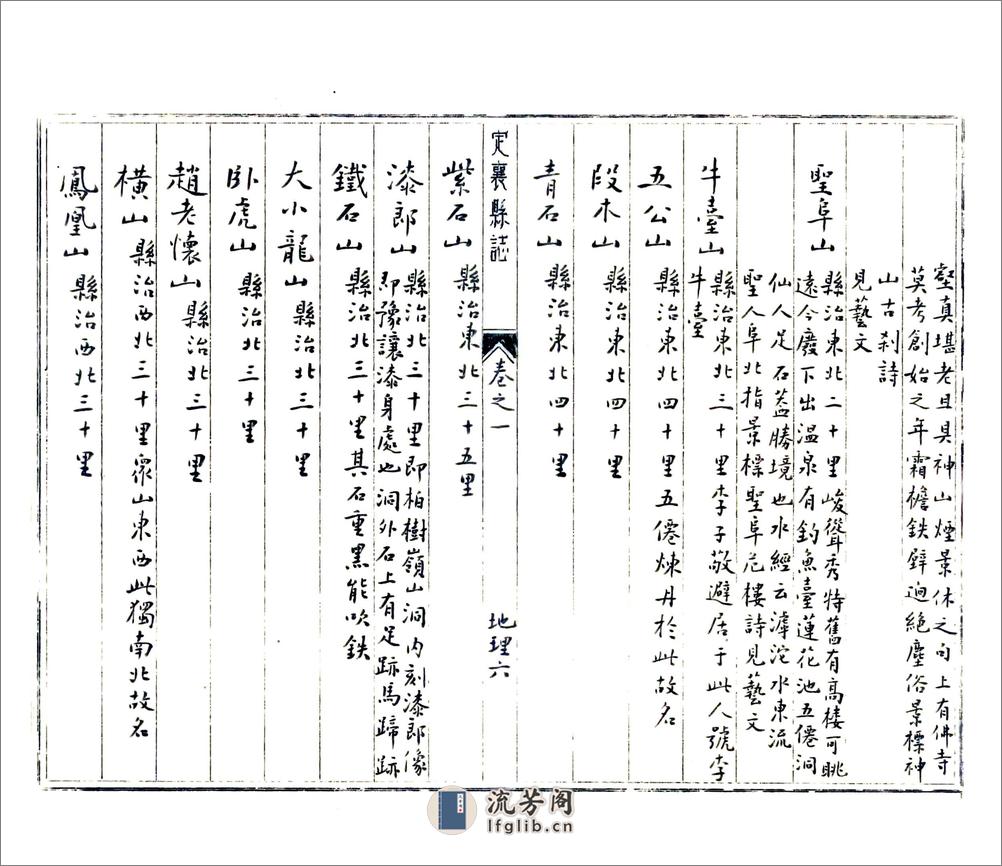 壑真堪老且具神山煙景休之句上有佛寺
莫考創始之年霜檐鉄壁迥絕塵俗景標神
山古刹詩
見藝文
聖阜山 縣治東北二十里峻聳秀特舊有高樓可眺
遠今廢下出溫泉有釣魚臺蓮花池五僊洞
仙人足石蓋勝境也水經云滹沱水東流
聖人阜北指景標聖阜危樓詩見藝文
牛臺山 縣治東北三十里李子敬避居于此人號李
牛臺
五公山 縣治東北四十里五僊煉丹於此故名
段木山 縣治東北四十里
青石山 縣治東北四十里
定襄縣誌 卷之一 地理六
紫石山 縣治東北三十五里
漆郎山 縣治北三十里即柏樹嶺山洞內刻漆郎像
即豫讓漆身處也洞外石上有足跡馬蹄跡
鐵石山 縣治北三十里其石重黑能吹鉄
大小龍山 縣治北三十里
卧虎山 縣治北三十里
趙老懷山 縣治北三十里
橫山 縣治西北三十里衆山東西此獨南北故名
鳳凰山 縣治西北三十里
流芳阁
lfglib.cn